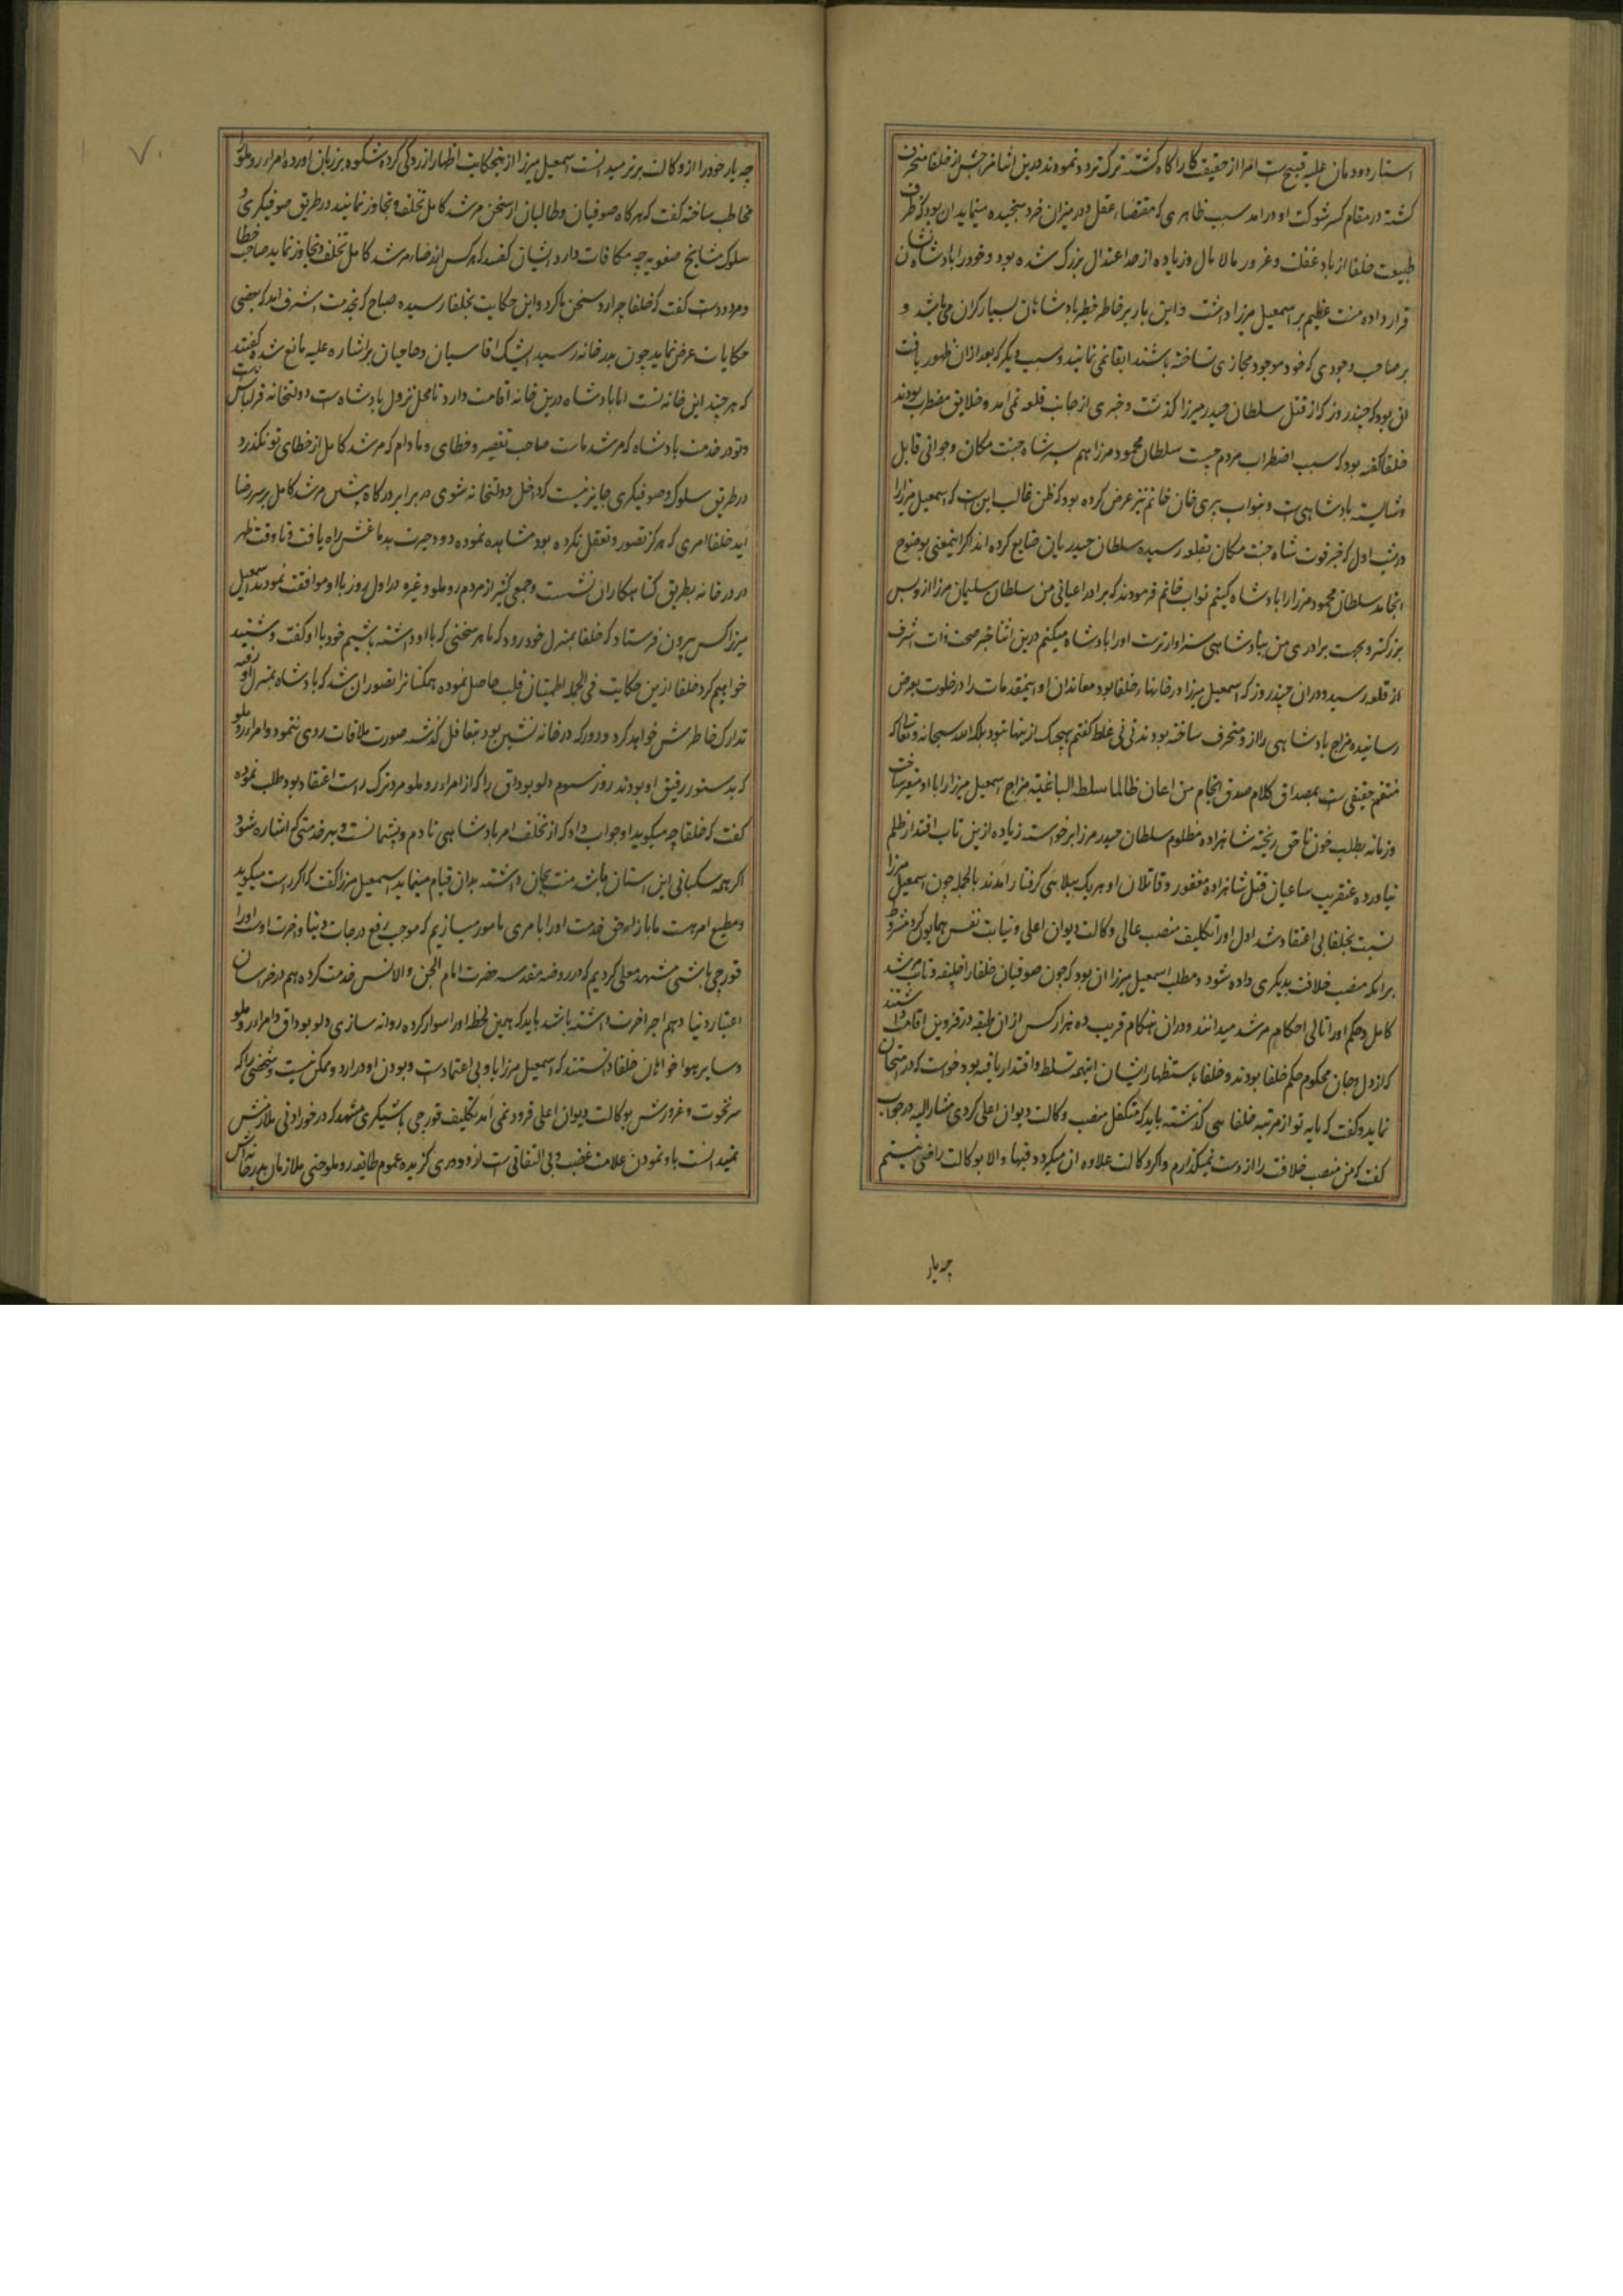 استار دودمان علیه قبیح است امرا از حقیقت کار اکاه کشته ترک تردد نمودند درین اثنا مزاج اشرف از خلفا منحرف
کشته در مقام کسر شوکت او درامد سبب ظاهری که مقتضاء عقل و در میزان خرد سنجیده مینماید ان بود که ظرف
طبیعت خلفا از باد غفلت و غرور مالامال و زیاده از حد اعتدال بزرک شده بود و خود را پادشاه نشان
قرار داده منت عظیم بر اسمعیل میرزا داشت و این بار بر خاطر خطیر پادشاهان بسیار کران می باشد و
بر صاحب وجودی که خود موجود مجازی ساخته باشند ابقا نمی نمایند و سبب دیکر که بعد از ان ظهور یافت
ان بود که چند روز که از قتل سلطان حیدر میرزا کذشت و خبری از جانب قلعه نمی آمد و خلایق مضطرب بودند
خلفا کفته بود که سبب اضطراب مردم چیست سلطان محمود میرزا هم پسر شاه جنت مکان و جوانی قابل
و شایسته پادشاهی است و بنواب پری خان خانم نیز عرض کرده بود که ظن غالب این است که اسمعیل میرزا را
در شب اول که خبر فوت شاه جنت مکان بقلعه رسیده سلطان حیدریان ضایع کرده اند اکر اینمعنی بوضوح
انجامد سلطان محمود میرزا را پادشاه کنیم نواب خانم فرمودند که برادر اعیانی من سلطان سلیمان میرزا از و بسن
بزرکتر و بجهت برادری من بپادشاهی سزاوارترست او را پادشاه میکنم درین اثنا خبر صحت ذات اشرف
از قلعه رسید و دران چند روز که اسمعیل میرزا در خانه خلفا بود معاندان او اینمقدمات را در خلوت بعرض
رسانیده مزاج پادشاهی را از و منحرف ساخته بودند نی نی غلط کفتم هیچیک ازینها نبود بلکه الله سبحانه و تعالی که
منتقم حقیقی است بمصداق کلام صدق انجام من اعان ظالما سلطه الله باغیه مزاج اسمعیل میرزا را با او متغیر ساخت
و زمانه بطلب خون ناحق ریخته شاهزاده مظلوم سلطان حیدر میرزا برخواسته زیاده ازین تاب اقتدار ظلم
نیاورده عنقریب ساعیان قتل شاهزاده مغفور و قاتلان او هر یک ببلایی کرفتار آمدند بالجمله چون اسمعیل میرزا
نسبت بخلفا بی اعتقاد شد اول او را تکلیف منصب عالی وکالت دیوان اعلی و نیابت نفس همایون کرد مشروط
برانکه منصب خلافت بدیکری داده شود و مطلب اسمعیل میرزا ان بود که چون صوفیان خلفا را خلیفه و نایب مرشد
کامل و حکم او را تالی احکام مرشد میدانند و دران هنکام قریب ده هزار کس از ان طبقه در قزوین اقامت داشتند
که از دل و جان محکوم حکم خلفا بودند و خلفا باستظهار ایشان اینهمه تسلط و اقتدار یافته بود خواست که در امتحان
نماید و کفت که پایه تو از مرتبه خلفایی کذشته باید که متکفل منصب وکالت دیوان اعلی کردی مشار الیه در جواب
کفت که من منصب خلافت را از دست نمیکذارم و اکر وکالت علاوه ان میکردد فبها و الا بوکالت راضی نیستم
چه یار
۷۰
چه یار خود را از وکالت برتر میدانست اسمعیل میرزا از ینحکایت اظهار ازردکی کرده شکوه بر زبان اورده امراء روملو را
مخاطب ساخته کفت که هر کاه صوفیان و طالبان از سخن مرشد کامل تخلف و تجاوز نمانید در طریق صوفیکری و
سلوک مشایخ صفویه چه مکافات دارد ایشان کفتند که هر کس از رضاء مرشد کامل تخلف و تجاوز نماید صاحب خطا
و مردودست کفت که خلفا چرا رد سخن ما کرد و این حکایت بخلفا رسیده صباح که بخدمت اشرف امد که بعضی
حکایات عرض نماید چون بدر خانه رسید ایشک اقاسیان و حاجبان باشاره علیه مانع شده کفتند
که هر چند این خانه تست اما پادشاه درین خانه اقامت دارد تا محل نزول پادشاه است دولتخانه قزلباش است
و تو در خدمت پادشاه که مرشد ماست صاحب تقصیر و خطای و مادام که مرشد کامل از خطای تو نکذرد
در طریق سلوک و صوفیکری جایز نیست که داخل دولتخانه شوی در برابر درکاه بنشین مرشد کامل بر سر رضا
آید خلفا امری که هرکز تصور و تعقل نکرده بود مشاهده نموده دود حیرت بدماغش راه یافت و تا وقت ظهر
در در خانه بطریق کناهکاران نشست و جمعی کثیر از مردم روملو و غیره در اول روز با او موافقت نمودند اسمعیل
میرزا کس بیرون فرستاد که خلفا بمنزل خود رود که ما هر سخنی که با او داشته باشیم خود با او کفت و شنید
خواهیم کرد خلفا ازین حکایت فی الجمله اطمینان قلب حاصل نموده همکنانرا تصور ان شد که پادشاه بمنزل او رفته
تدارک خاطرش خواهد کرد و دو روز که در خانه نشین بود بتغافل کذشته صورت ملاقات روی ننمود و امراء روملو
که بدستور رفیق او بودند روز سوم دلو بوداق را که از امراء روملو مرد ترک راست اعتقاد بود طلب نموده
کفت که خلفا چه میکوید او جواب داد که از تخلف امر پادشاهی نادم و پشیمانست و بهر خدمتی که اشاره شود
اکر همه سکبانی این استان باشد منت بجان داشته بدان قیام مینماید اسمعیل میرزا کفت که اکر راست میکوید
و مطیع امر هست ما بازاء حق خدمت او را بامری مامور میسازیم که موجب رفع درجات دنیا و اخرت اوست او را
قورچی باشی مشهد معلی کردیم که در روضه مقدسه حضرت امام الجن و الانس خدمت کرده هم در خراسان
اعتبار دنیا و هم اجر اخرت داشته باشد باید که همین لحظه او را سوار کرده روانه سازی دلو بوداق و امراء روملو
و سایر هوا خواهان خلفا دانستند که اسمعیل میرزا باو بی اعتمادست و بودن او در اردو ممکن نیست و شخصی را که
سر نخوت و غرورش بوکالت دیوان اعلی فرود نمی آمد تکلیف قورچی باشیکری مشهد که در خور ادنی ملازمش
نمیدانست باو نمودن علامت غضب و بی التفاتی است از و دوری کزیده عموم طایفه روملو حتی ملازمان